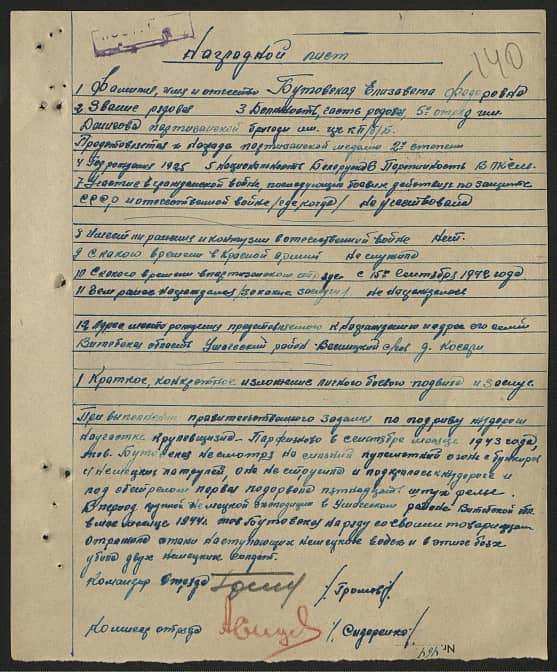 140
Наградной лист
1 Фамилия, имя и отчество Бутовская Елизавета Федоровна
2 Звание рядовая 3 Должность, часть рядовая, 5й отряд им.
Данукова партизанской бригады им. ЦК КП/б/Б.
Представляется к награде партизанской медалью 2й степени
4 Год рождения 1925 5 Национальность Белоруска 6 Партийность ВЛКСМ
7 Участие в гражданской войне, последующих боевых действиях по защите
СССР и отечественной войне /где, когда/ Не участвовала
8 Имеет ли ранения и контузии в отечественной войне Нет.
9 С какого времени в Красной армии Не служила
10 С какого времени в партизанском отряде с 15го Сентября 1942 года
11 Чем ранее награждалась /за какие заслуги/ Не награждалась
12 Место рождения представляемого к награждению и адрес его семьи
Витебская область Ушачский район Веницкий с/сов д. Косари
1 Краткое, конкретное изложение личного боевого подвига и заслуг.
При выполнении правительственного задания по подрыву ж/дороги
на участке Крулевщизна - Парафьяново в сентябре месяце 1943 года,
тов. Бутовская несмотря на сильный пулеметный огонь с бункеров
и немецких патрулей, она не струсила и подползла к ж/дороге и
под обстрелом первая подорвала пятнадцать штук рельс.
В период крупной немецкой экспедиции в Ушачском районе Витебской обл.
в мае месяце 1944г. тов Бутовская наряду со своими товарищами
отражала атаки наступающих немецких войск и в этих боях
убила двух немецких солдат.
Командир отряда /Громов/
Комиссар отряда /Сидоренко/